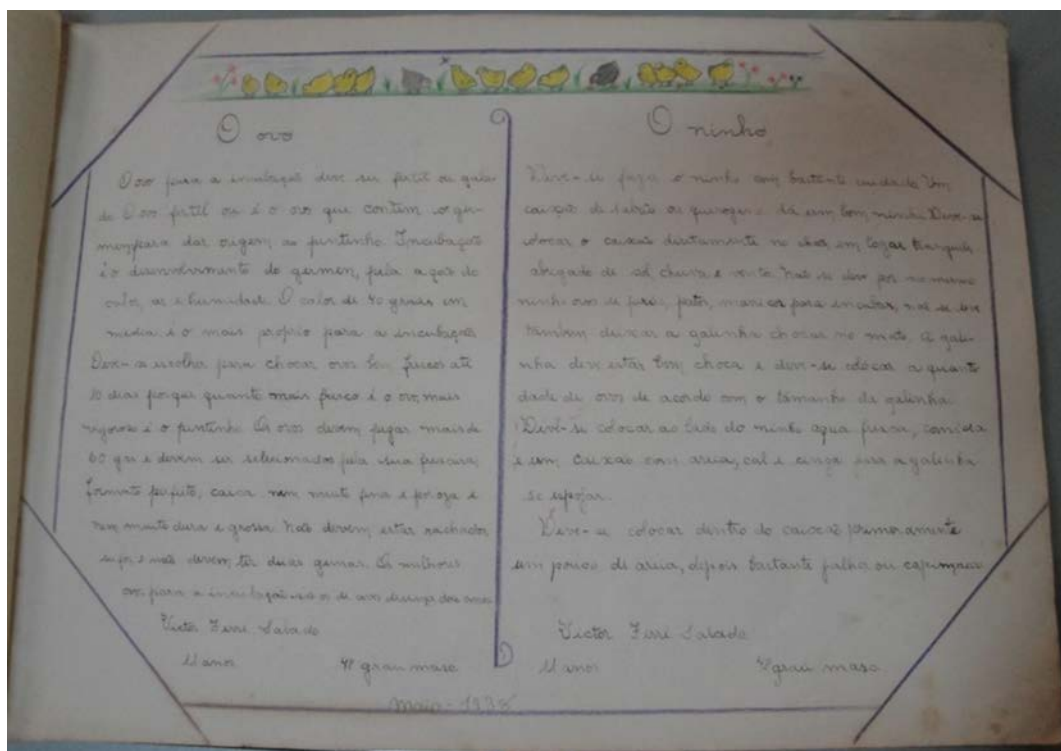 O ovo
O ovo para a incubação deve ser fertil ou gala-
do. O ovo fertil ou é o ovo que contem o ger-
men para dar origem ao pintinho. Incubação
é o desenvolvimento do germen, pela ação do
calor, ar e humidade. O calor de 40 graus em
media é o mais proprio para a incubação
Deve-se escolher para chocar ovos bem frescos até
10 dias porque quanto mais fresco é o ovo, mais
vigoroso é o pintinho. Os ovos devem pegar mais de
60 grs e devem ser selecionados pela sua
formato perfeito, casca nem muito fina e porosa e
nem muito dura e grossa. Não devem estar rachados
e não devem ter duas gemas. Os melhores
ovos para a incubação são os de
Victor Ferri Salado
11 anos 4º grau masc.
Maio - 1938
O ninho
Deve-se fazer o ninho com bastante cuidado. Um
caixão de sabão ou querozene dá um bom ninho. Deve-se
colocar o caixão diretamente no chão, em logar tranquilo
abrigado de sol, chuva e vento. Não se deve por no mesmo
ninho ovos de perús, patos, para encubar, não se deve
tambem deixar a galinha chocar no mato. A gali-
nha deve estar bem choca e deve-se colocar a quanti
dade de ovos de acordo com o tamanho da galinha.
Deve-se colocar ao lado do ninho agua fresca, comida
e um caixão com areia, cal e cinza para a galinha
se espojar.
Deve-se colocar dentro do caixão primeiramente
um pouco de areia, depois bastante palha ou capim
Victor Ferri Salado
11 anos 4º grau masc.